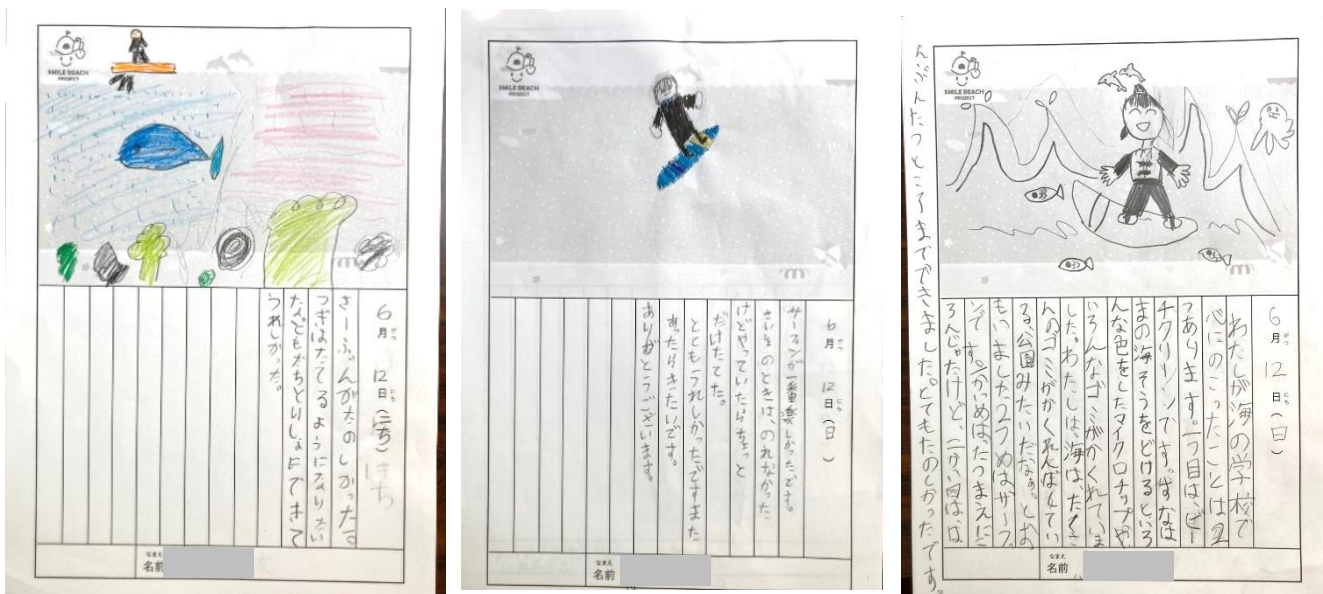 SMILE BEACH
PROJECT
6月がつ 12日にち(にち)
さーふぃんがたのしかった。
つぎはたてるようになりたい
な。ともだちといっしょにできて
うれしかった。
なまえ
名前
SMILE BEACH
PROJECT
6月がつ 12日にち(日)
サーフィンが一番楽しかったです。
さいしょのときは、のれなかった
けどやっていたらちょっと
だけたてた。
とてもうれしかったですまた
あったらきたいです。
ありがとうございます。
なまえ
名前
SMILE BEACH
PROJECT
6月がつ 12日にち(日)
わたしが海の学校で
心にのこったことは2
つあります。一つ目は、ビー
チクリーンです。すなは
まの海そうをどけるといろ
んな色をしたマイクロチップや
いろんなゴミがかくれていま
した。わたしは、海は、たくさ
んのゴミがかくれんぼしてい
る、公園みたいだなぁ。とお
もいました。2つめはサーフィ
ンです。1かいめはたつまえにこ
ろんじゃたけど、二かい目は、は
んぶんたつところまでできました。とてもたのしかったです。
なまえ
名前